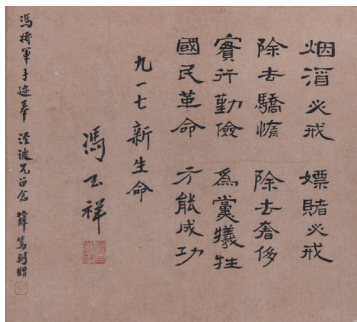 烟酒必戒 嫖赌必戒
除去驕惰 除去奢侈
實行勤儉 為黨犧牲
國民革命 方能成功
九一七新生命
馮玉祥
馮將軍手迹奉 凌波兄留念 薛篤弼贈